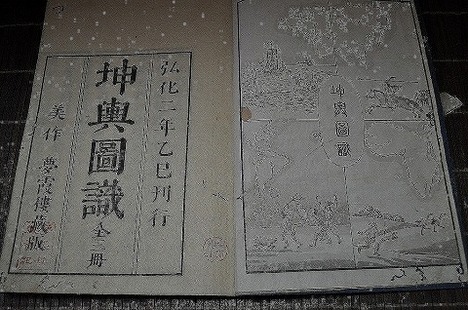 弘化二年乙巳刊行
坤輿圖識 全三冊
美作 夢霞樓藏版
坤輿圖識